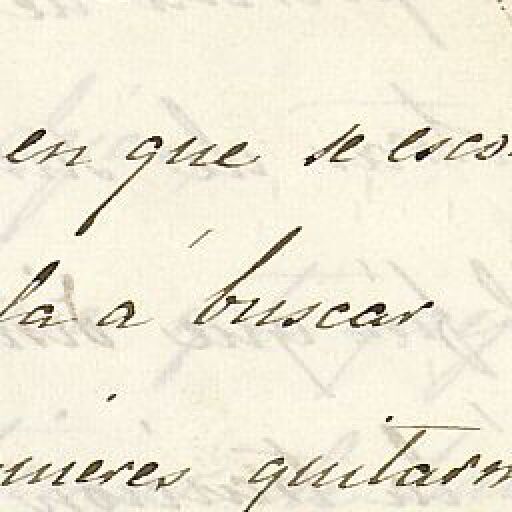 en que se esco
la á buscar
quieres quitarm